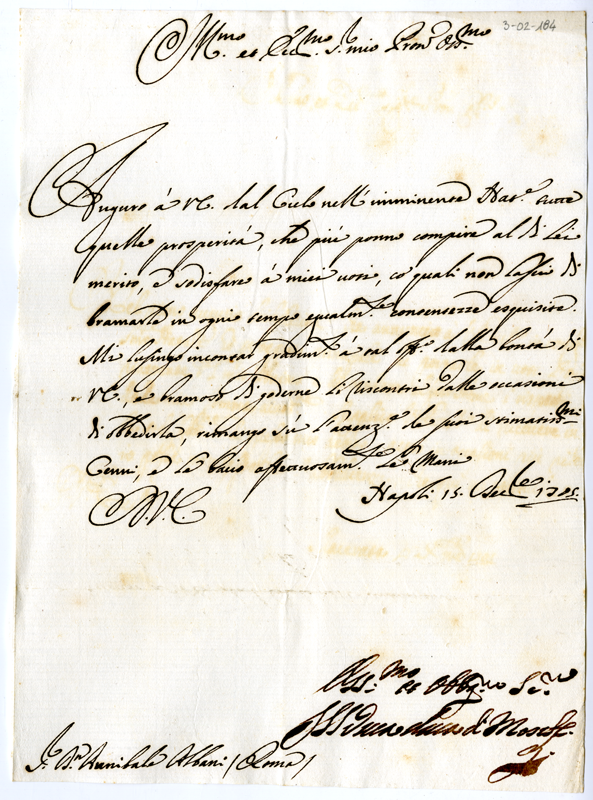 3-02-184
Ill.mo et Ecc.mo S.r mio Pron. Oss.mo
Auguro à V.E. dal Cielo nell' imminente Nat.e tutte
quelle prosperità, che più ponno compire al di Lei
merito, e sodisfare à miei voti, co' quali non lascio di
bramarle in ogni tempo egualm.te contentezze esquisite.
Mi lusingo incontrar gradim.to à tal off.o dalla bontà di
V.E., e bramoso di goderne li riscontri dalle occasioni
di obbedirla, rimango sù l'attenz.e de suoi stimatiss.mi
Cenni, e le bacio affettuosam.te le Mani
Napoli 15. Dec.bre 1705.
D.V.E.
Aff.mo et Obblig.mo Se.re
Duca
S.r D. Annibale Albani (Roma)